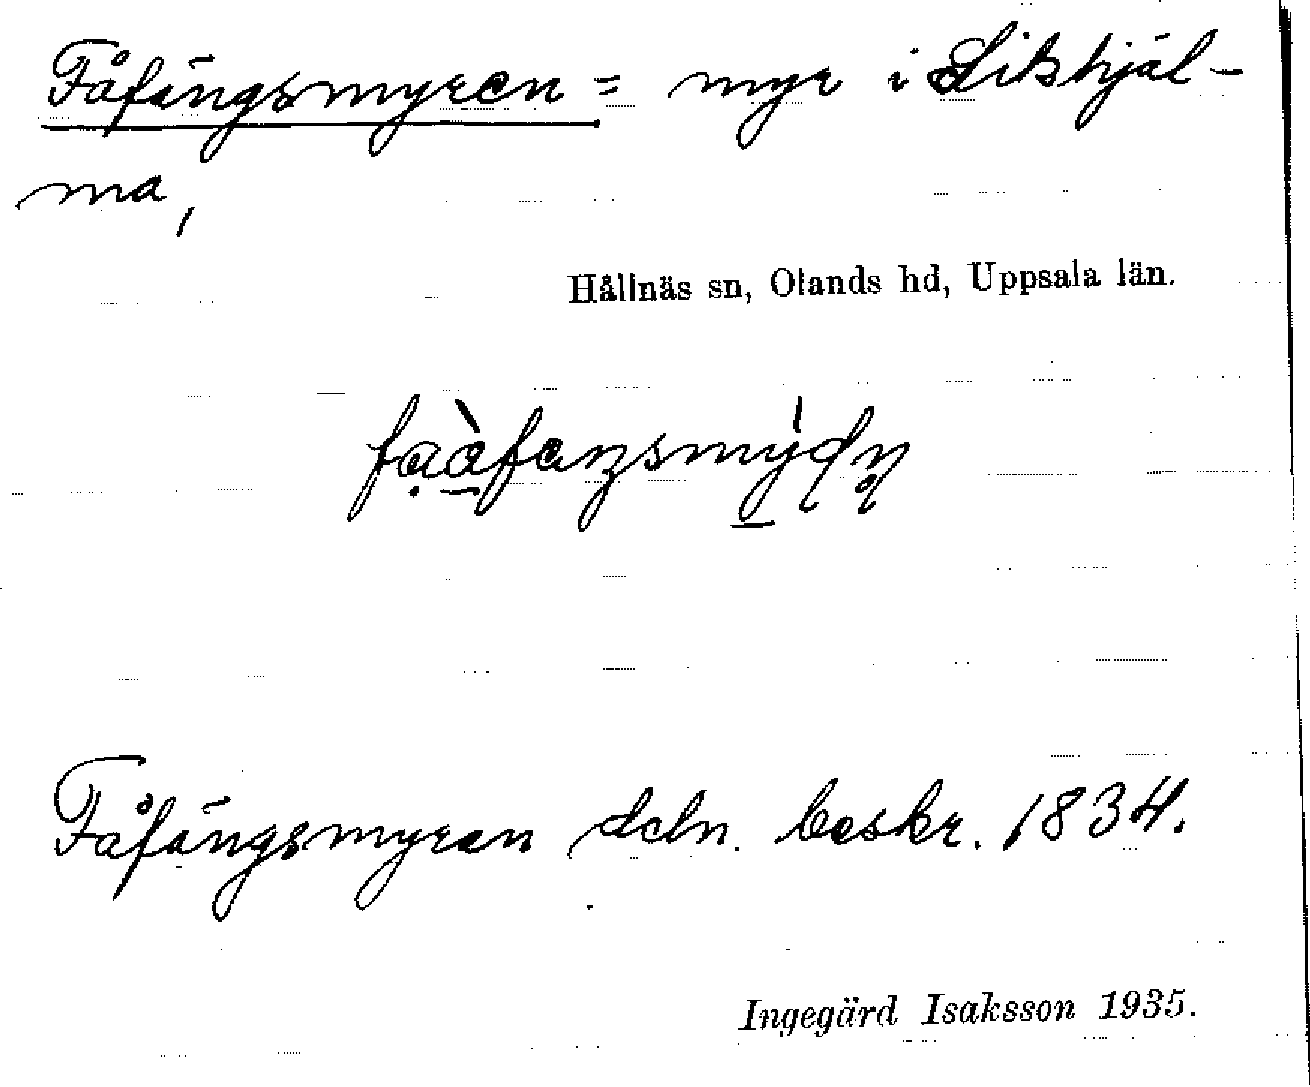 Fåfängsmyren = myr i Sikhjäl-
ma,
Hållnäs sn, Olands hd, Uppsala län.
Fåfängsmyran deln. beskr. 1834.
Ingegärd Isaksson 1935.